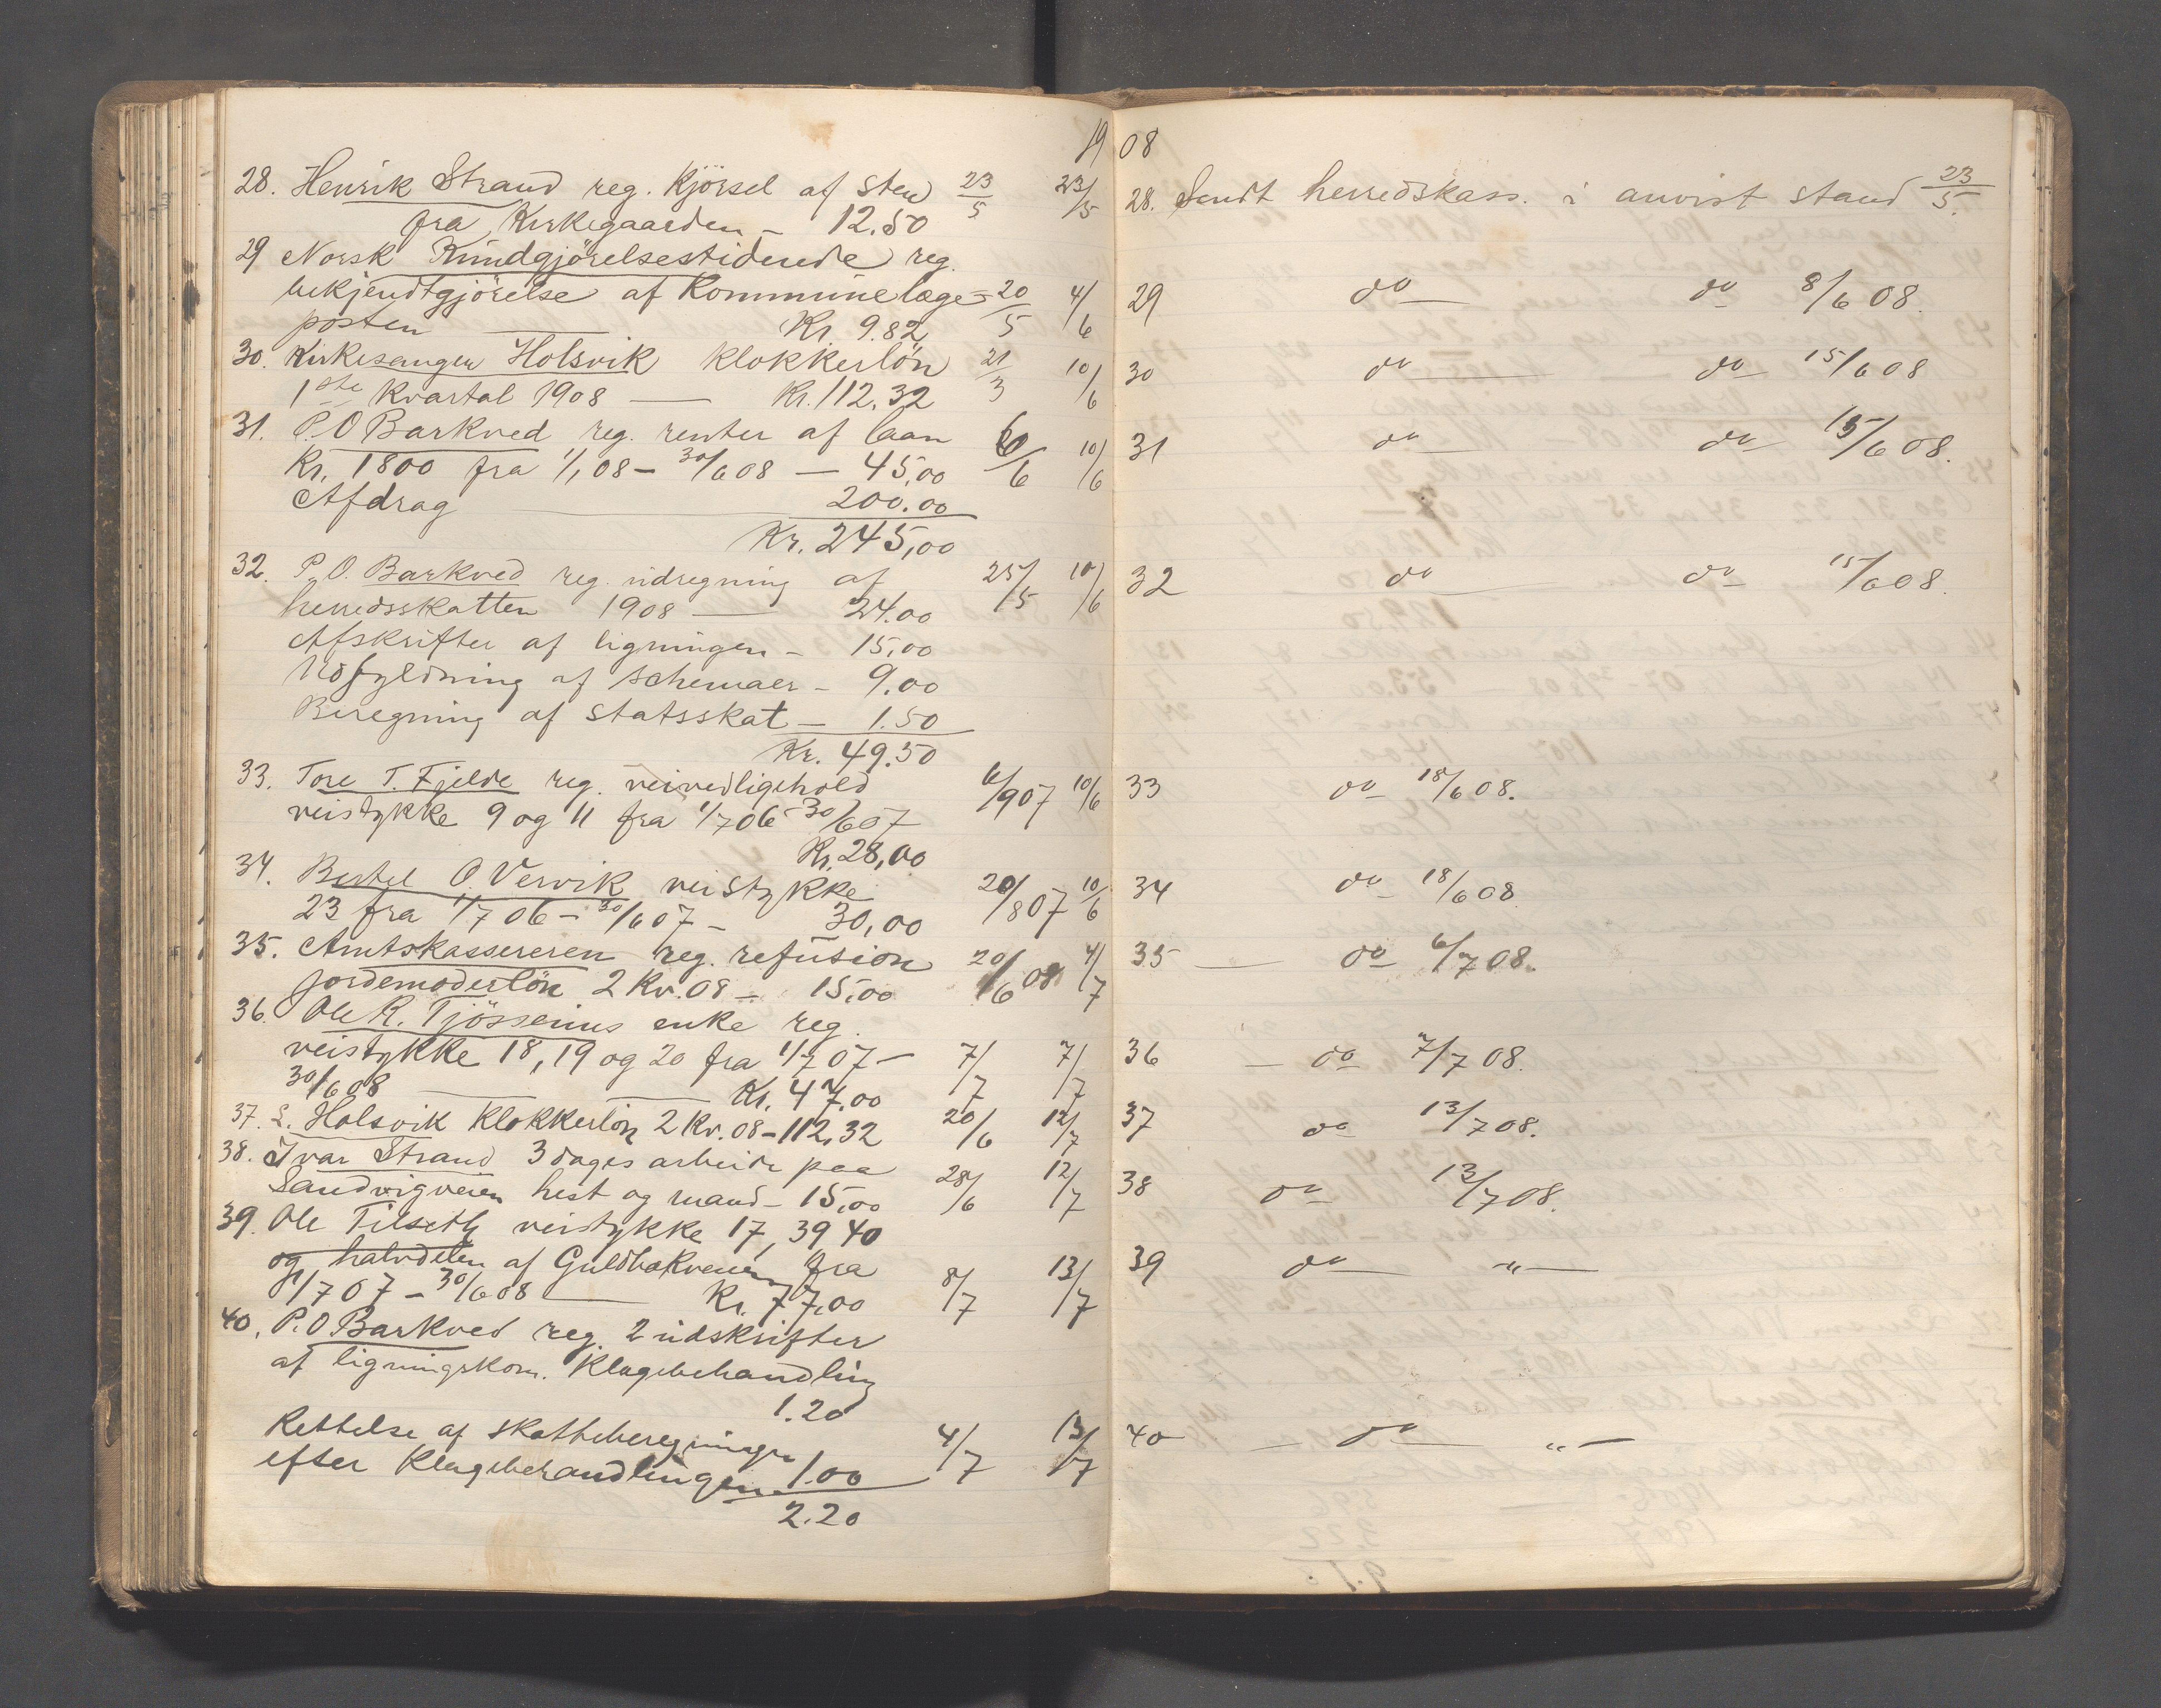 1908
28. Henrik Strand reg. Kjörsel af Sten 23/5 23/5
fra Kirkegaarden – 12.50
29 Norsk Kundgjörelsestidende reg.
bekjendtgjörelse af Kommunelæge- 20/5 4/6
posten — Kr. 9.82
30. Kirkesanger Holsvik Klokkerlön 21/3 10/6
1ste Kvartal 1908 — Kr. 112,32
31. P.O Barkved reg. renter af laan 6/6 10/6
Kr. 1800 fra 1/1 08 – 30/6 08 – 45,00
Afdrag — 200.00
Kr. 245,00
32. P.O. Barkved reg. udregning af 25/5 10/6
herredsskatten 1908 — 24.00
Afskrifter af ligningen – 15,00
Udfyldning af schemaer – 9.00
Beregning af statsskat – 1.50
Kr. 49.50
33. Tore T. Fjelde reg. veivedligehold 6/9 07 10/6
veistykke 9 og 11 fra 1/7 06 – 30/6 07
Kr. 28,00
34. Bertel O. Vervik veistykke 20/8 07 10/6
23 fra 1/7 06 – 30/6 07 – 30,00
35. Amtskassereren reg. refusion 20/6 08 4/7
jordemoderlön 2 Kv. 08 – 15,00
36. Ole R. Tjössems enke reg.
veistykke 18, 19 og 20 fra 1/7 07 – 7/7 7/7
30/6 08 — Kr. 47,00
37. S. Holsvik Klokkerlön 2 Kv. 08 – 112,32 20/6 12/7
38. Ivar Strand 3 dages arbeide paa
Sandvigveien hest og mand – 15,00 28/6 12/7
39. Ole Tilseth veistykke 17, 39 40
og halvdelen af Guldbakveien fra
1/7 07 – 30/6 08 — Kr. 77,00 8/7 13/7
40. P.O Barkved reg. 2 udskrifter
af ligningskom. Klagebehandling
1.20
Rettelse af skatteberegningen 4/7 13/7
efter Klagebehandlingen 1.00
2.20
28. Sendt herredskass. i anvist stand 23/5.
29 do do 8/6 08.
30 do do 15/6 08
31 do do 15/6 08.
32 do do 15/6 08.
33 do 18/6 08.
34 do 18/6 08.
35 — do 6/7 08.
36 – do 7/7 08.
37 do 13/7 08.
38 do 13/7 08.
39 do — " —
40 – do — " —